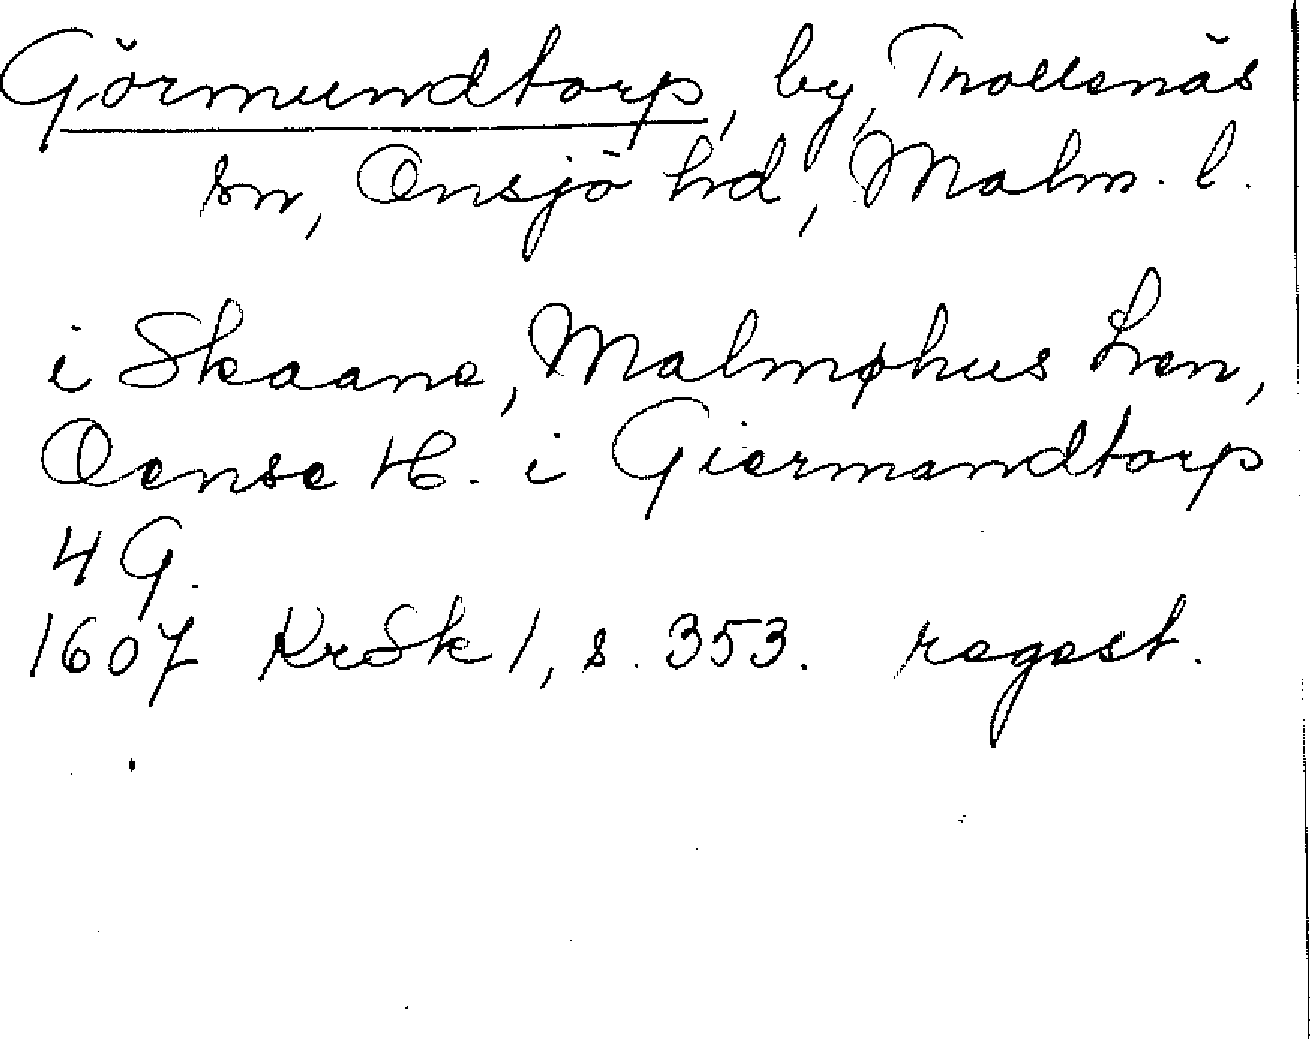 Görmundtorp, by, Trollenäs
sn, Onsjö hd, Malm. l.
i Skaane, Malmøhus Len,
Oense H. i Giermandtorp
4 G.
1607 KrSk 1, s. 353. regest.